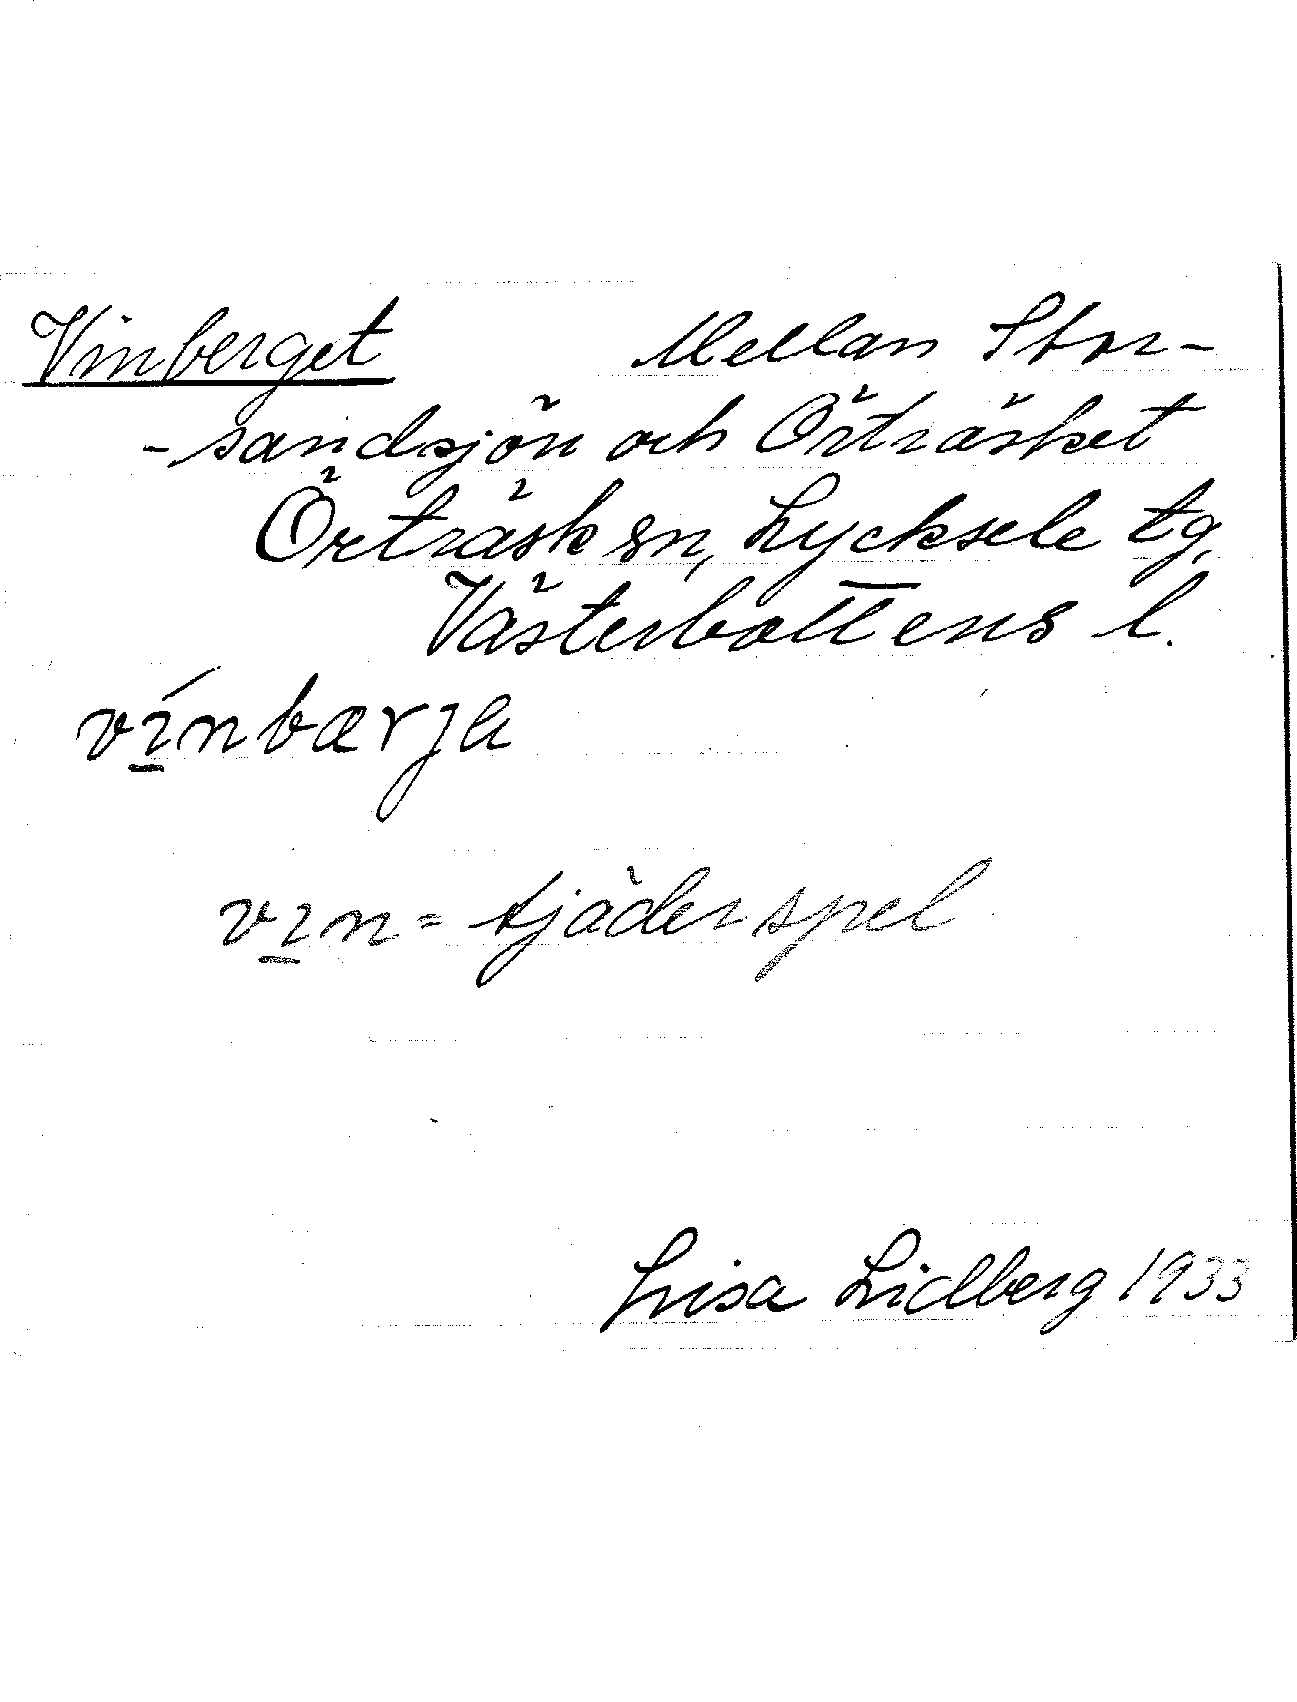 Vinberget Mellan Stor-
-sandsjön och Örträsket
Örträsk sn, Lycksele tg,
Västerbottens l.
vı̲́nbærja
vı̲n = tjäderspel
Lisa Lidberg 1933